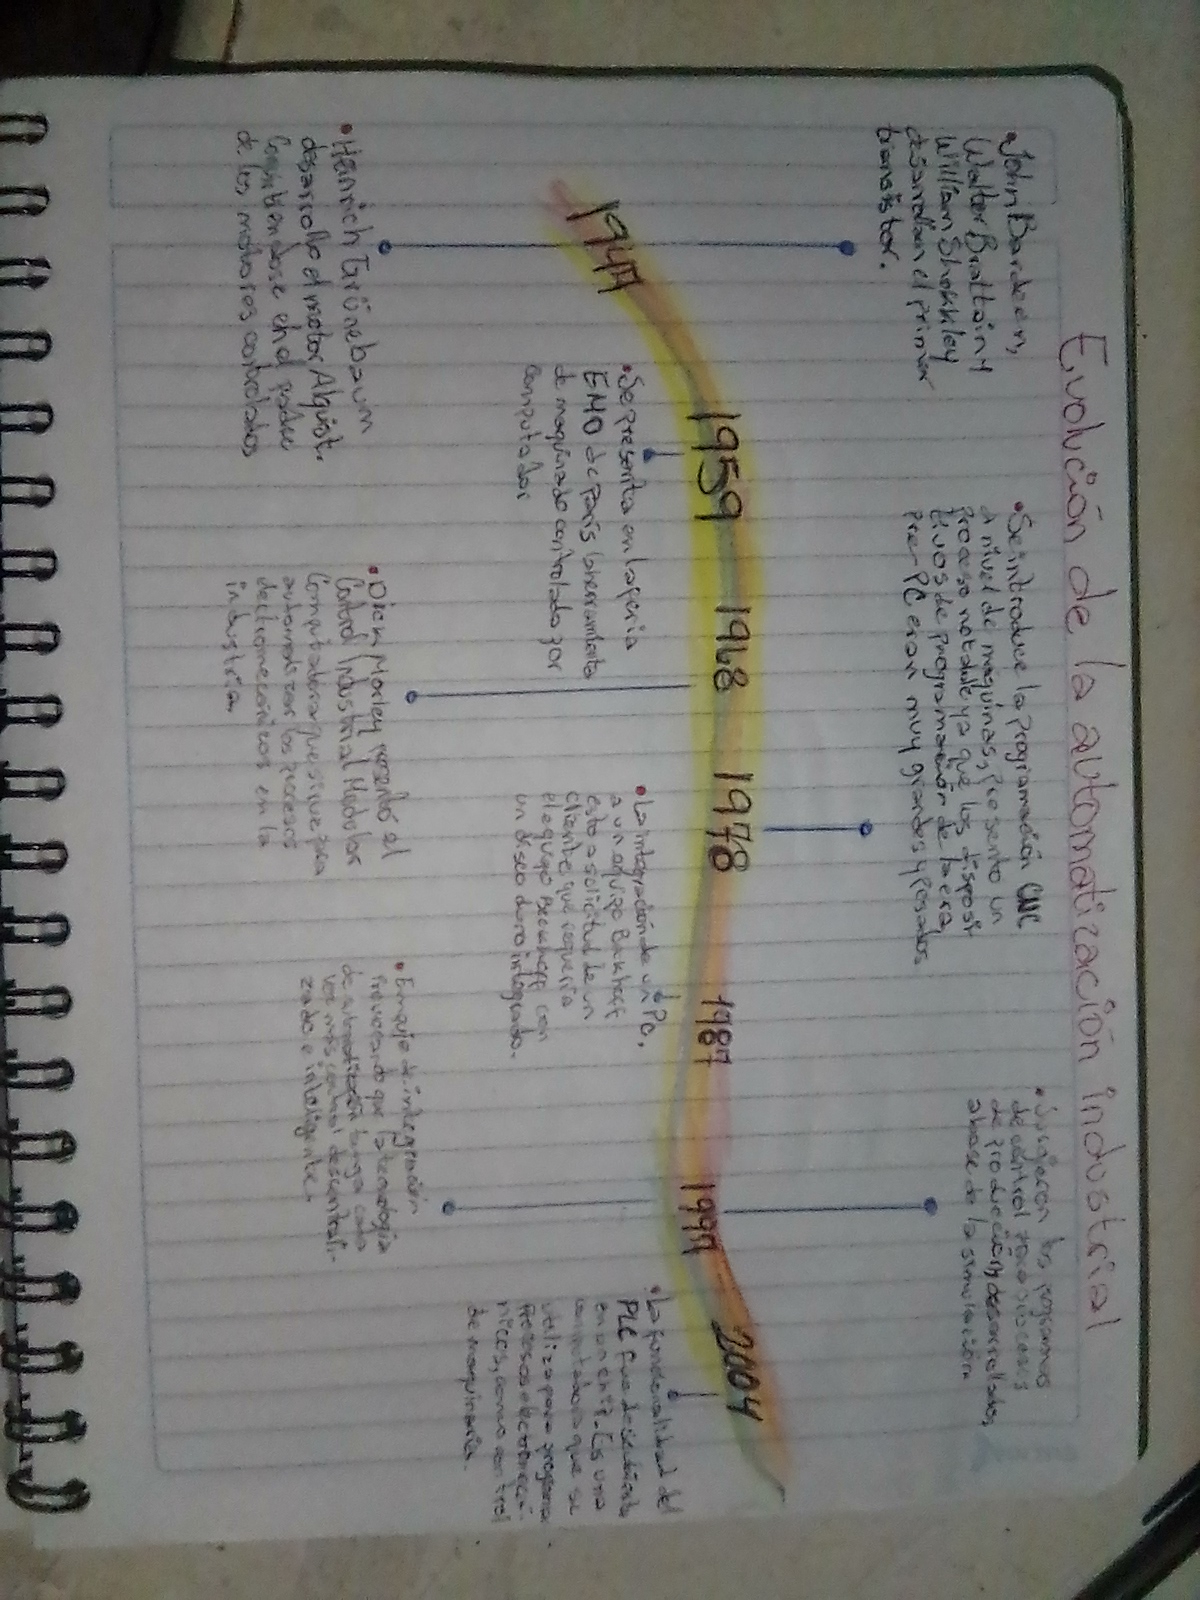 Evolución de la automatización industrial
• John Bardeen,
Walter Brattain y
William Shokkley
desarrollan el primer
transistor.
• Se introduce la programación CNC
a nivel de maquinas, presento un
proceso notable ya que los disposi-
tivos de programación de la era
pre-PC eran muy grandes y pesados.
• Surgieron los programas
de control para procesos
de producción desarrollados,
a base de la simulación
1947
1959
1968
1978
1987
1997
2004
• Se presenta en la feria
EMO de París la herramienta
de maquinado controlado por
computador
• La integración de un PC,
a un equipo Backhoff
esto a solicitud de un
cliente que requeria
el equipo Beckhoff con
un disco duro integrado.
• La funcionalidad del
PLC fue
en un Es una
computadora que se
utiliza para programar
Procesos electromecá-
nicos, como control
de maquinaria.
• Heinrich Grünebaum
desarrollo el motor Alquist.
Convirtiendose en el padre
de los motores controlados
• Dick Morley presentó el
Control Industrial Modular
Computadora que sirve para
automatizar los procesos
electromecánicos en la
industria.
• Empuje de integración
Provocando que la tecnología
de automatización tenga cada
vez más control descentrali-
zado e inteligente.